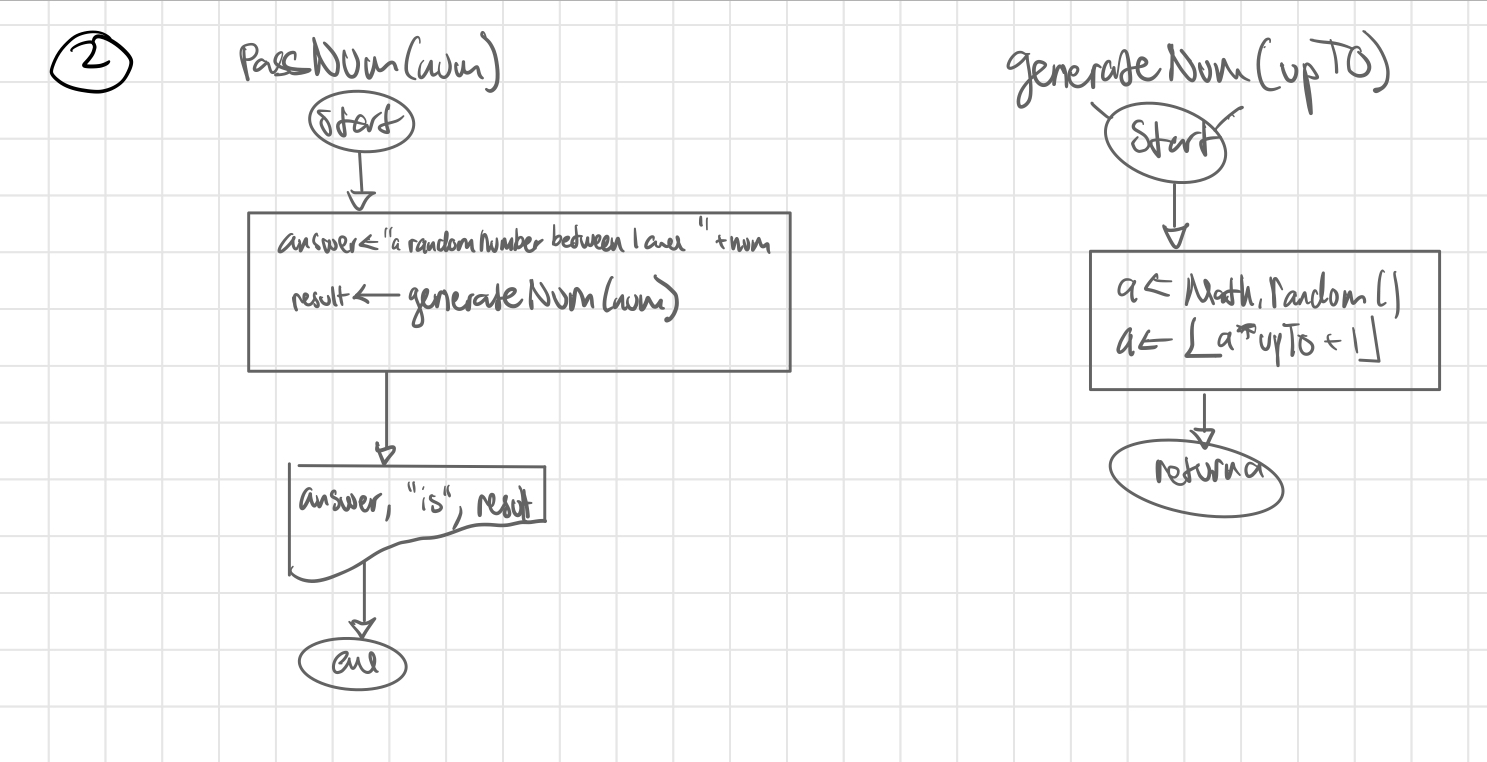 2
PassNum(num)
Start
answer← "a random number between 1 and " + num
result ← generateNum(num)
answer, "is", result
end
generateNum(upTo)
Start
a ← Math.random()
a ← ⌊a*upTo + 1⌋
return a